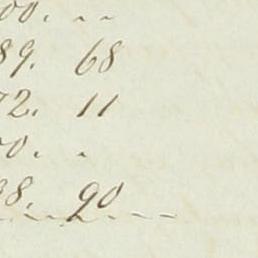 00. . .
89. 68
72. 11
00. .
38. 90